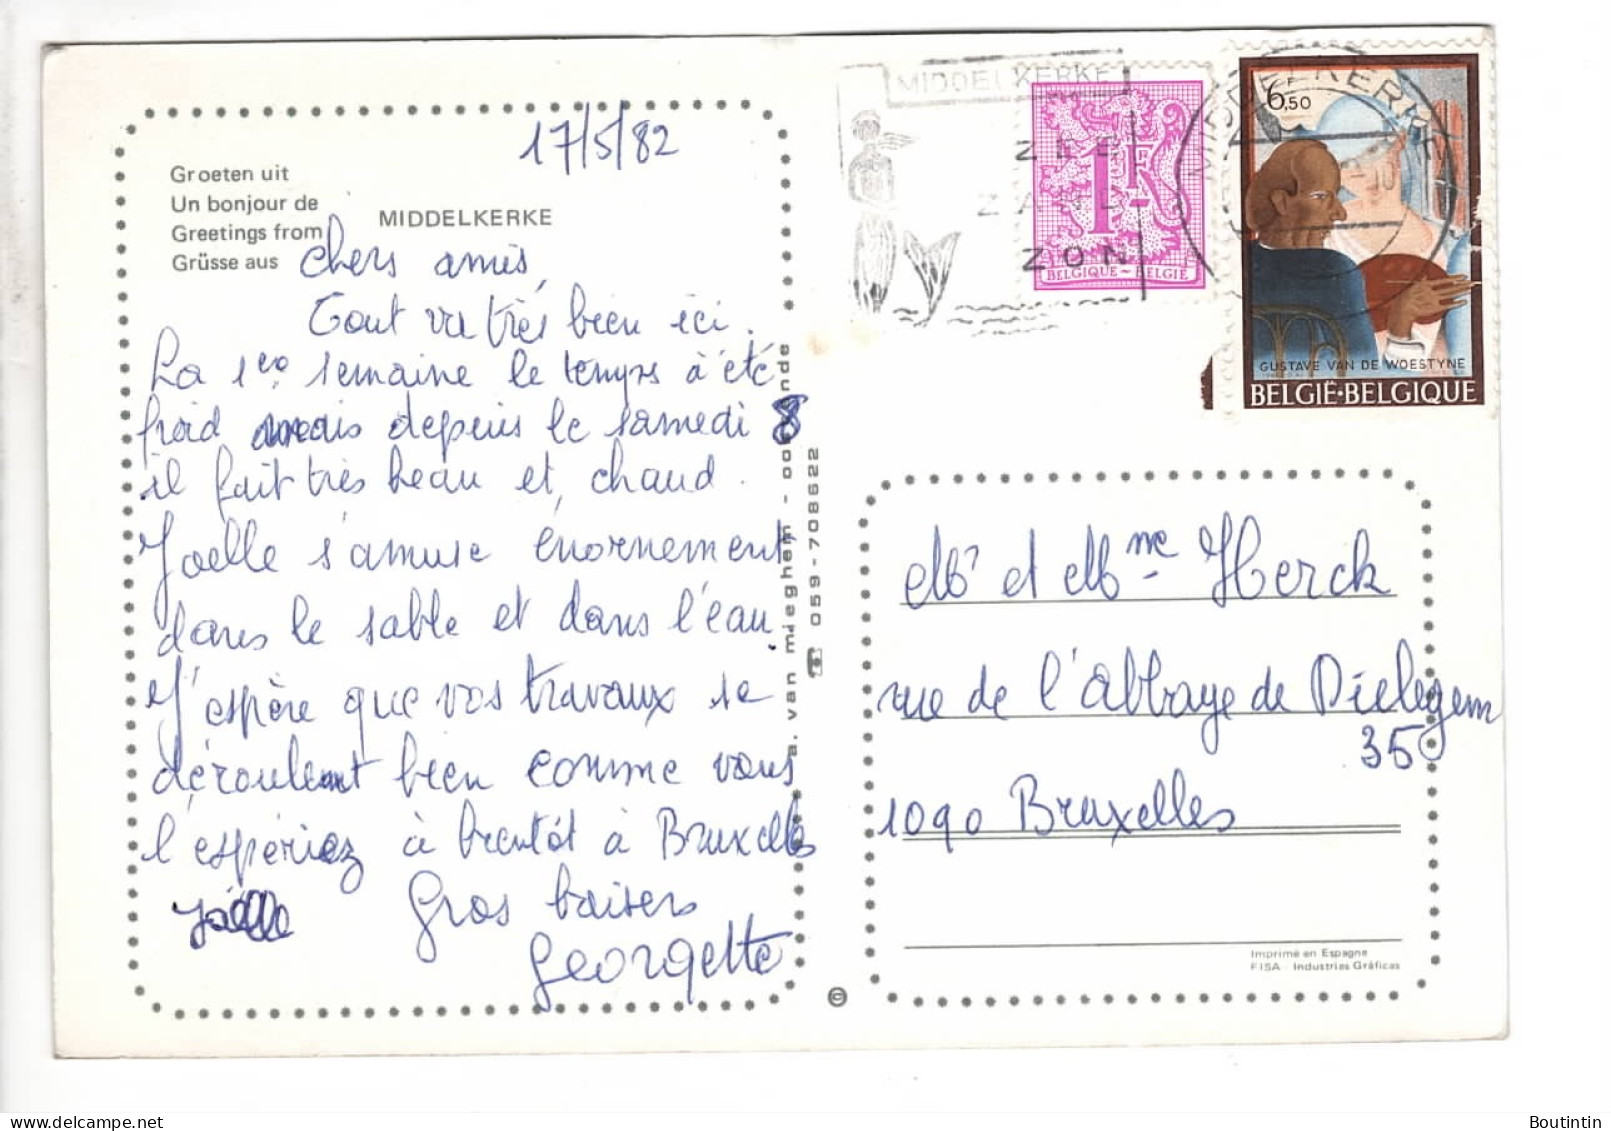 17/5/82
Groeten uit
Un bonjour de
Greetings from
Grüsse aus
MIDDELKERKE
chers amis,
Tout va très bien ici.
La 1ère semaine le temps à été
froid mais depuis le samedi 8
il fait très beau et chaud.
Joelle s'amuse énormement
dans le sable et dans l'eau
J'espère que vos travaux se
déroulent bien comme vous
l'espériez à bientôt à Bruxelles
Joëlle
Gros baisers
Georgette
a. van mieghem - oostende
059-708622
MIDDELKERKE
ZEE
ZAND
ZON
1F
BELGIQUE-BELGIË
MIDDELKERKE
6,50
GUSTAVE VAN DE WOESTYNE
BELGIË·BELGIQUE
Mr et Mme Herck
rue de l'Abbaye de Dielegem
35
1090 Bruxelles
Imprimé en Espagne
FISA - Industrias Gráficas
©
Boutintin